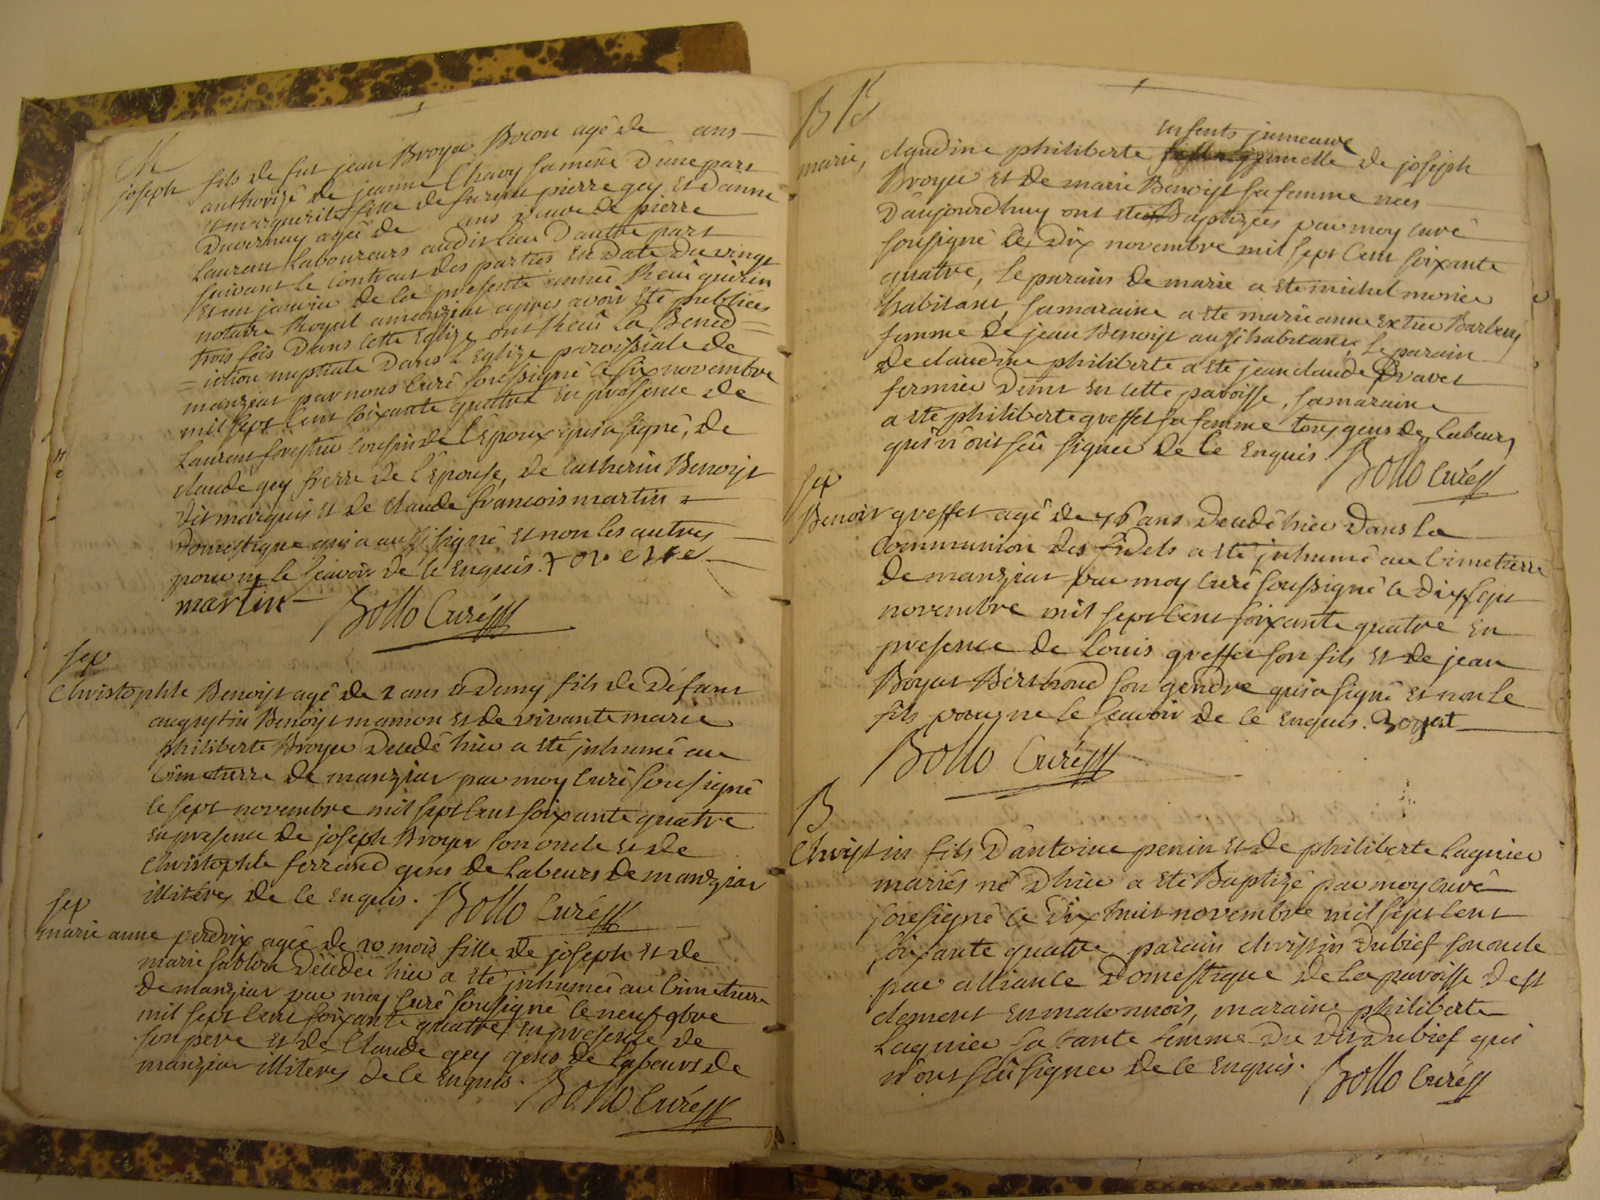 M
joseph fils de fut jean Broyer Boron agé de ans
authorizé de jeanne Chavy sa mère d'une part
et marguerite fille de furent pierre gey et d'anne
Duvernay agée de ans veuve de pierre
Laurent Laboureurs audit lieu d'autre part
suivant le contract des parties en date du vingt
et un janvier de la presente année Receu guerin
notaire Royal a manziat apres avoir été publiées
trois fois dans cette Eglise ont Receu la Bened=
=iction nuptiale dans l'Eglize paroissiale de
manziat par nous Curé soussigné le six novembre
mil sept cent soixante quatre en presence de
Laurent forestier cousin de l'Epoux qui a signé, de
claude gey frerre de l'Epouse, de catherin Benoist
dit marquis et de claude francois martin
domestique qui a aussi signé et non les autres
pour ne le scavoir de ce Enquis.
martin Bollo Curé
sep
Christophle Benoist agé de 2 ans et Demy fils de Défunt
augustin Benoist mamon et de vivante marie
philiberte Broyer decedé hier a été inhumé au
Cimetierre de manziat par moy Curé sousigné
le sept novembre mil sept cent soixante quatre
en presence de joseph Broyer son oncle et de
Christophle ferrand gens de Labeurs de manziat
illiterés de ce Enquis. Bollo Curé
sep
marie anne perdrix agée de 20 mois fille de joseph et de
marie sablon décédée hier a été inhumée au Cimetierre
de manziat par moy Curé sousigné le neuf 9bre
mil sept cent soixante quatre en presence de
son pere et de Claude gey gens de Labeurs de
manziat illiterés de ce Enquis. Bollo Curé
B B
marie, claudine philiberte enfents jumeaux de joseph
Broyer et de marie Benoist sa femme nées
D'aujourdhuy ont été Baptizées par moy curé
sousigné le Dix novembre mil sept Cent soixante
quatre, le parain de marie a été michel monier
habitant, sa maraine a été marianne Barberet
femme de jean Benoist aussi habitant, le parain
de claudine philiberte a été jean claude Pravet
fermier en cette paroisse, sa maraine
a été philiberte greffet sa femme tous gens de Labeurs
qui n'ont sçu signer de ce Enquis. Bollo Curé
sep
Benoit greffet agé de 76 ans decedé hier Dans la
Communion des fidels a été inhumé au Cimetierre
de manziat par moy Curé soussigné le dix sept
novembre mil sept cent soixante quatre en
presence de Louis greffet son fils et de jean
Boyat Bertrand son gendre qui a signé et non le
fils pour ne le scavoir de ce Enquis. Boyat
Bollo Curé
B
Christin fils D'antoine penin et de philiberte Lagnier
mariés né D'hier a été Baptizé par moy curé
soussigné le dix huit novembre mil sept cent
soixante quatre, parain christin Dubief son oncle
par alliance Domestique de la paroisse de st
clement en maconnois, maraine philiberte
Lagnier sa tante femme Du dit Dubief qui
n'ont sçu signer de ce Enquis. Bollo Curé